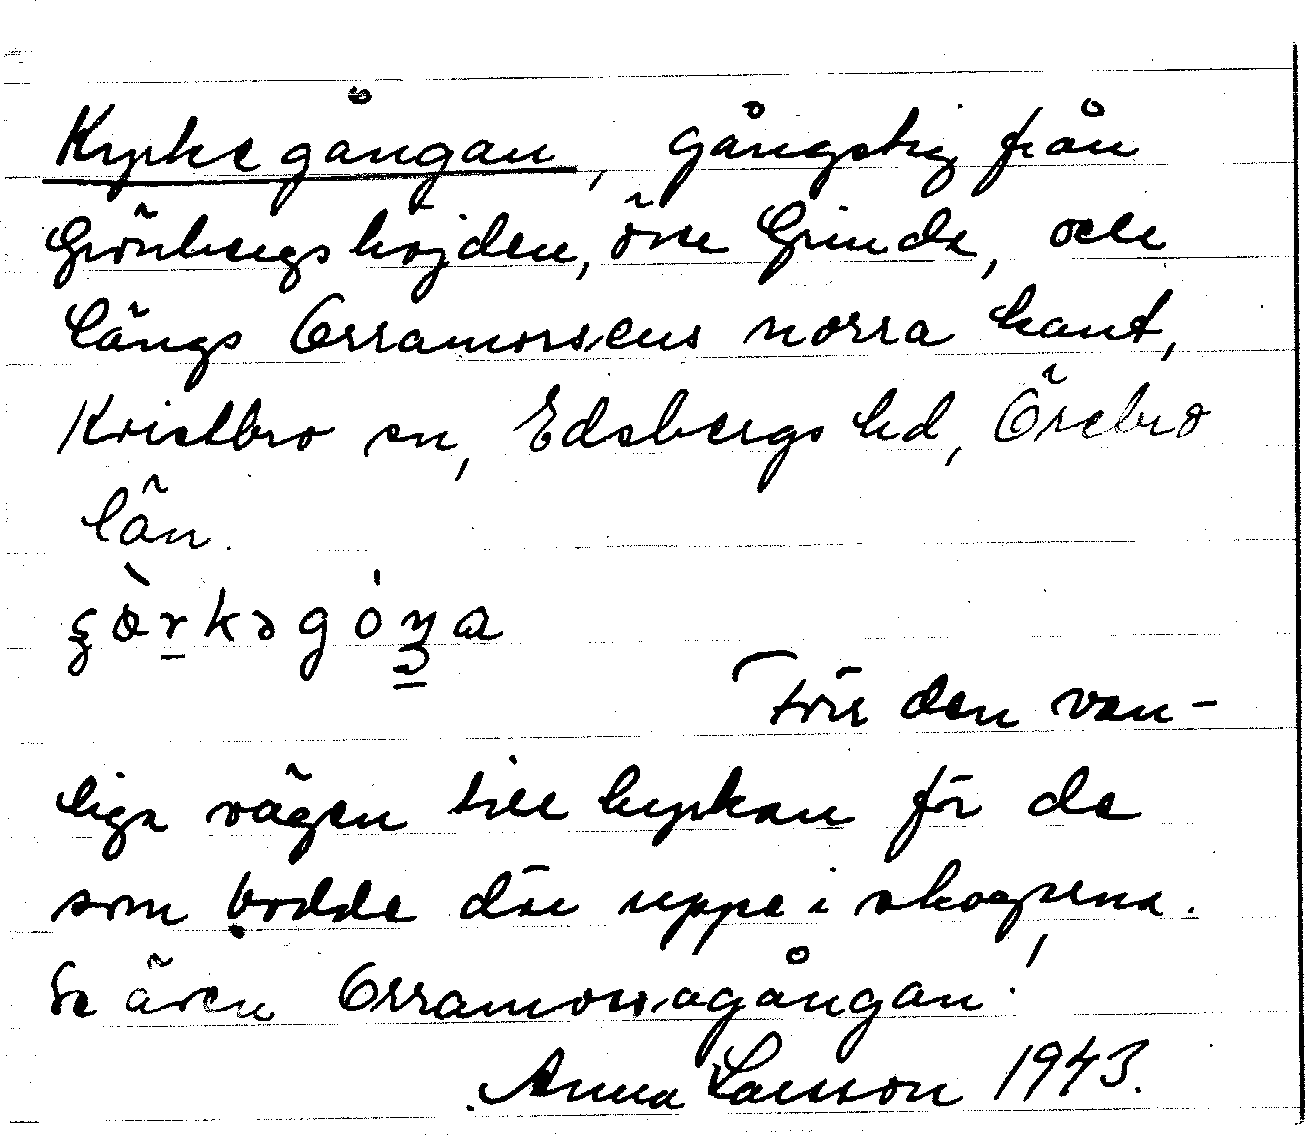 Kyrkegångan, gångstig från
Grönbergshöjden, övre Grinda, och
längs Orramossens norra kant,
Kvistbro sn, Edsbergs hd, Örebro
län.
Förr den van-
liga vägen till kyrkan för de
som bodde där uppe i skogarna.
Se även Orramossagångan!
Anna Larsson 1943.